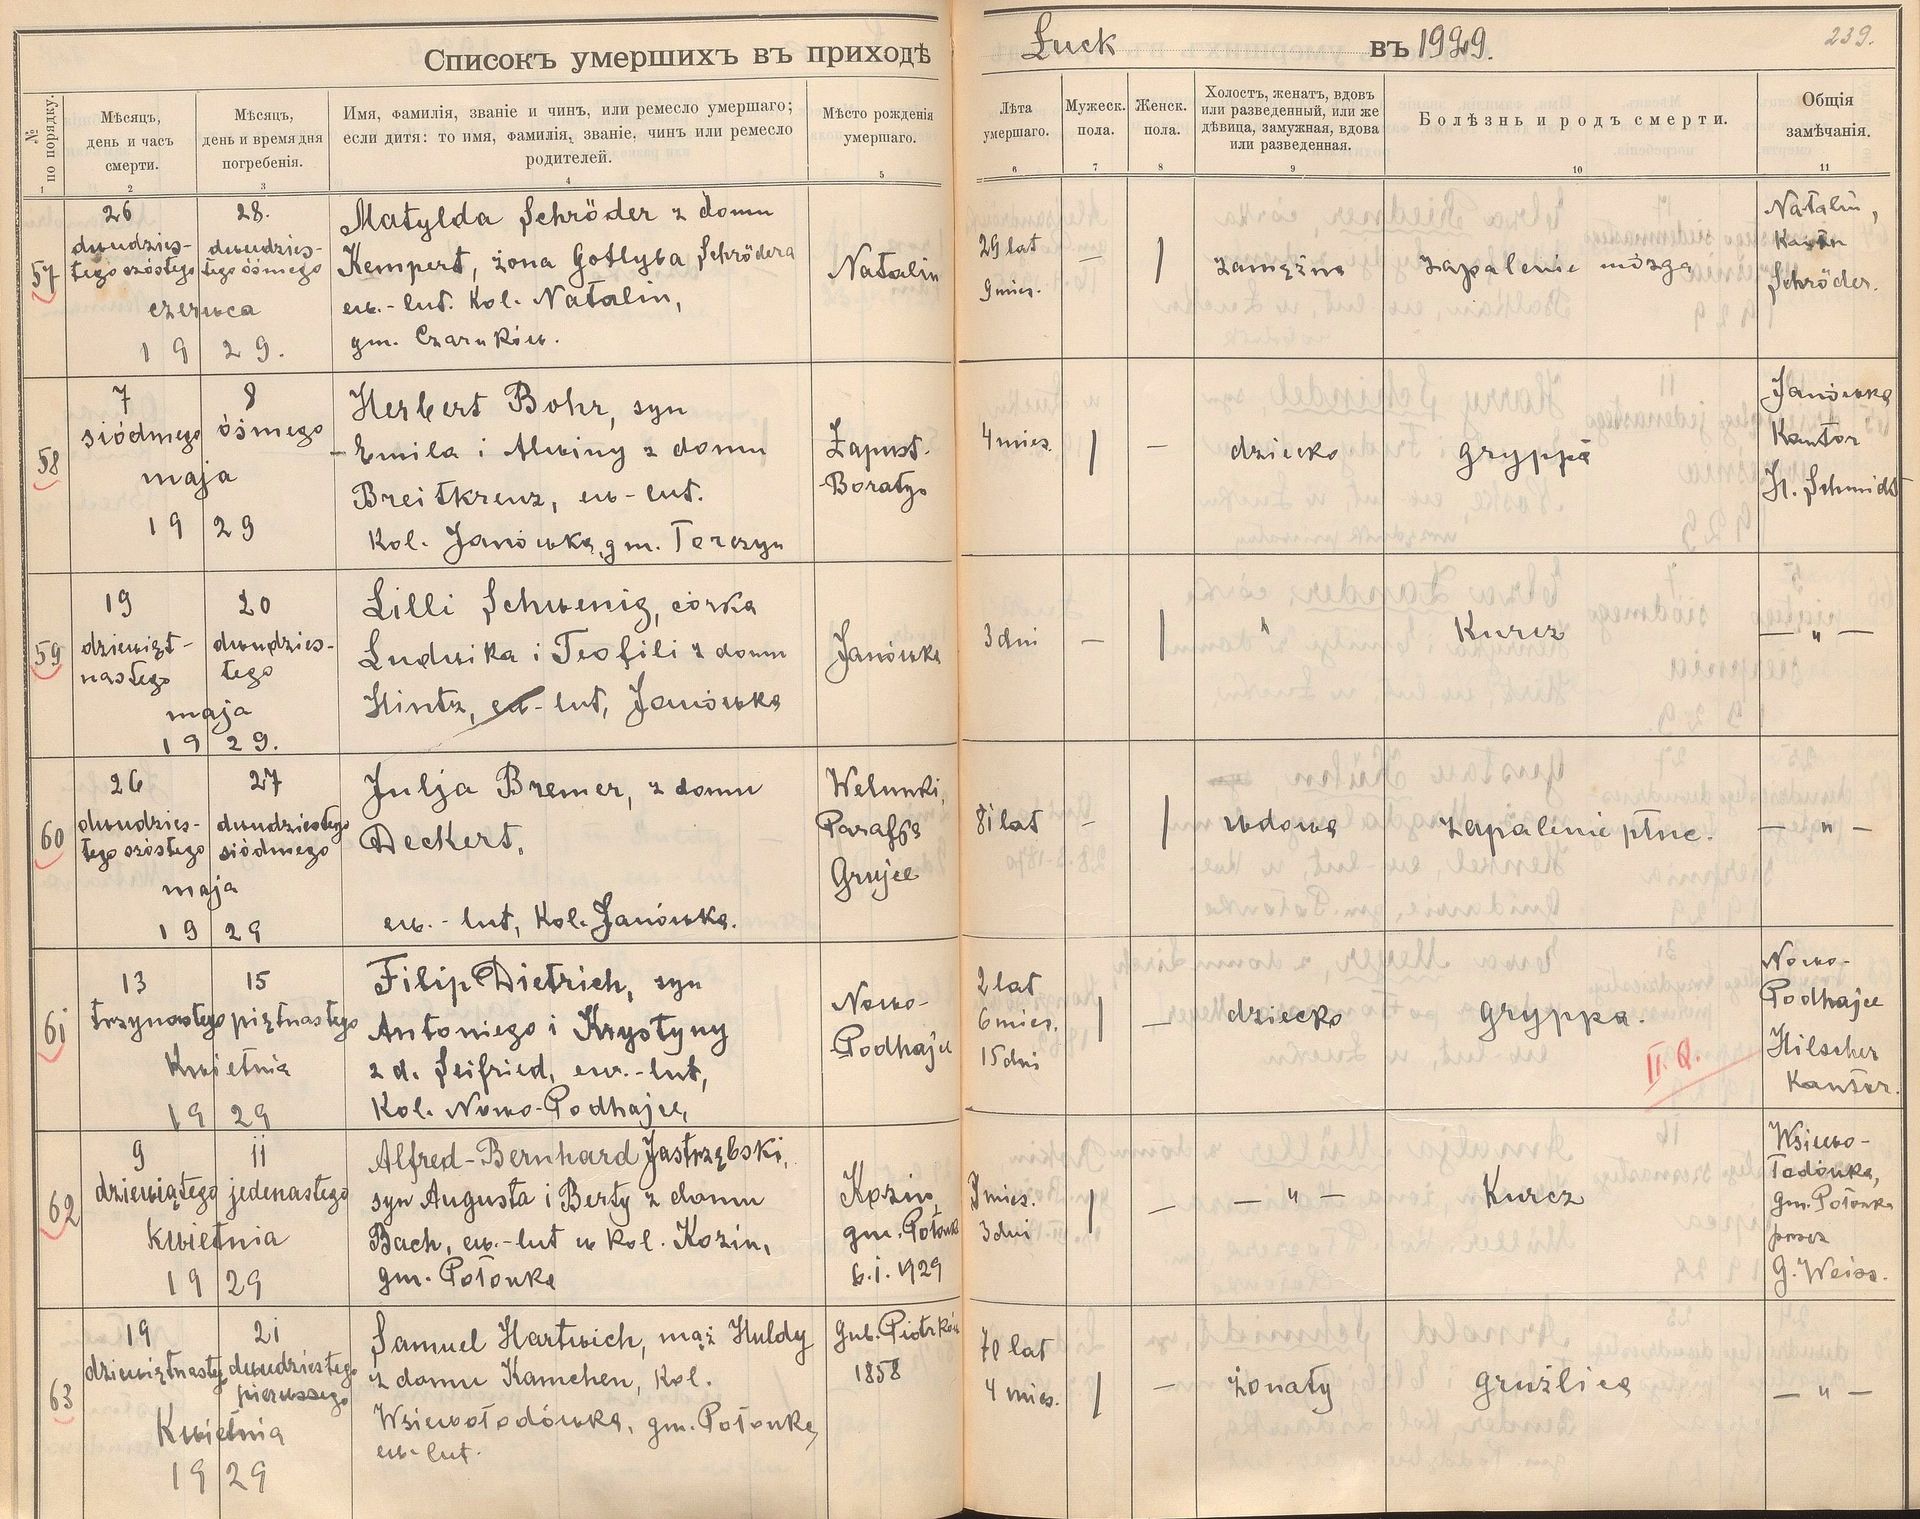 Списокъ умершихъ въ приходѣ Łuck въ 1929.
239.
№ по порядку.
Мѣсяцъ, день и часъ смерти.
Мѣсяцъ, день и время дня погребенія.
Имя, фамилія, званіе и чинъ, или ремесло умершаго; если дитя: то имя, фамилія, званіе, чинъ или ремесло родителей.
Мѣсто рожденія умершаго.
Лѣта умершаго.
Мужеск. пола.
Женск. пола.
Холостъ, женатъ, вдовъ или разведенный, или же дѣвица, замужная, вдова или разведенная.
Болѣзнь и родъ смерти.
Общія замѣчанія.
1 2 3 4 5 6 7 8 9 10 11
57
26
dwudzies-
tego szóstego
28.
dwudzies-
tego ósmego
czerwca
19 29.
Matylda Schröder z domu
Kempert, żona Gotlyba Schrödera
ew.-lut. Kol. Natalin,
gm. Czaruków.
Natalin
29 lat
9 mies.
—
|
zamężna
zapalenie mózga
Natalin,
Kantor
Schröder.
58
7
siódmego
8
ósmego
maja
19 29
Herbert Bohr, syn
Emila i Alwiny z domu
Breitkreuz, ew-lut.
Kol. Janówka, gm. Torczyn
Zapust-
Boratyo
4 mies.
|
—
dziecko
gryppa
Janówka
Kantor
H. Schmidt
59
19
dziewięt-
nastego
20
dwudzies-
tego
maja
19 29.
Lilli Schwenig, córka
Ludwika i Teofili z domu
Hintz, ew-lut, Janówka
Janówka
3 dni
—
|
"
Kurcz
— " —
60
26
dwudzies-
tego szóstego
27
dwudziestego
siódmego
maja
19 29
Julja Bremer, z domu
Deckert,
ew.-lut, Kol. Janówka.
Parafja
Grujec
81 lat
—
|
wdowa
zapalenie płuc.
— " —
61
13
trzynastego
15
piętnastego
Kwietnia
19 29
Filip Dietrich, syn
Antoniego i Krystyny
z d. Seifried, ew.-lut,
Kol. Nowo-Podhajce,
Nowo-
Podhajce
2 lat
6 mies.
15 dni
|
—
dziecko
gryppa.
II. Q.
Nowo-
Podhajce
Hilscher
Kantor.
62
9
dziewiątego
11
jedenastego
kwietnia
19 29
Alfred-Bernhard Jastrzębski,
syn Augusta i Berty z domu
Bach, ew.-lut w kol. Kozin,
gm. Połonka
Kozin,
gm. Połonka
6.I.1929
3 mies.
3 dni
|
—
— " —
Kurcz
Wsiewo-
łodówka,
gm. Połonka
przez
G. Weiss.
63
19
dziewiętnastego
21
dwudziestego
pierwszego
Kwietnia
19 29
Samuel Hartwich, mąż Huldy
z domu Kamchen, Kol.
Wsiewołodówka, gm. Połonka,
ew-lut.
gub. Piotrków
1858
70 lat
4 mies.
|
—
żonaty
gruźlica
— " —